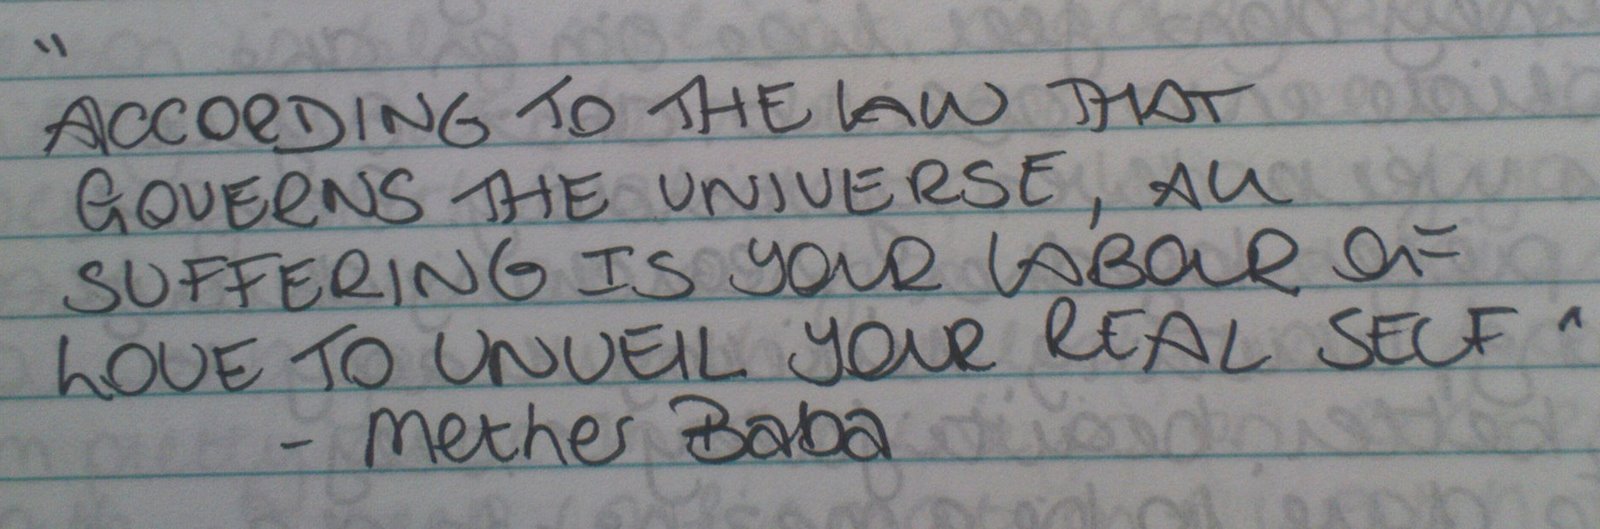 "
ACCORDING TO THE LAW THAT
GOVERNS THE UNIVERSE, ALL
SUFFERING IS YOUR LABOUR OF
LOVE TO UNVEIL YOUR REAL SELF "
- Mether Baba